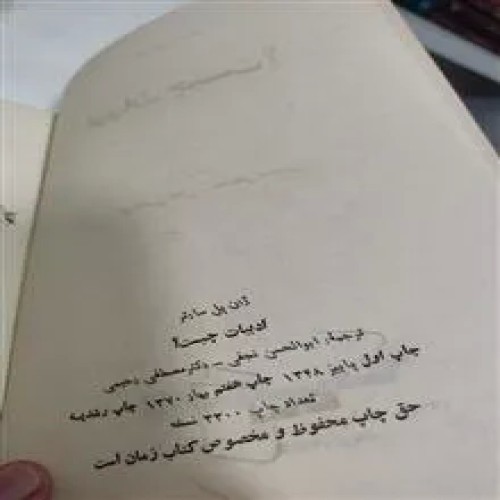 ژان پل سارتر
ادبیات چیست؟
ترجمهٔ: ابوالحسن نجفی – دکتر مصطفی رحیمی
چاپ اول پاییز ۱۳۴۸ چاپ هفتم بهار ۱۳۷۰ چاپ رشدیه
تعداد چاپ ۳۳۰۰ نسخه
حق چاپ محفوظ و مخصوص کتاب زمان است